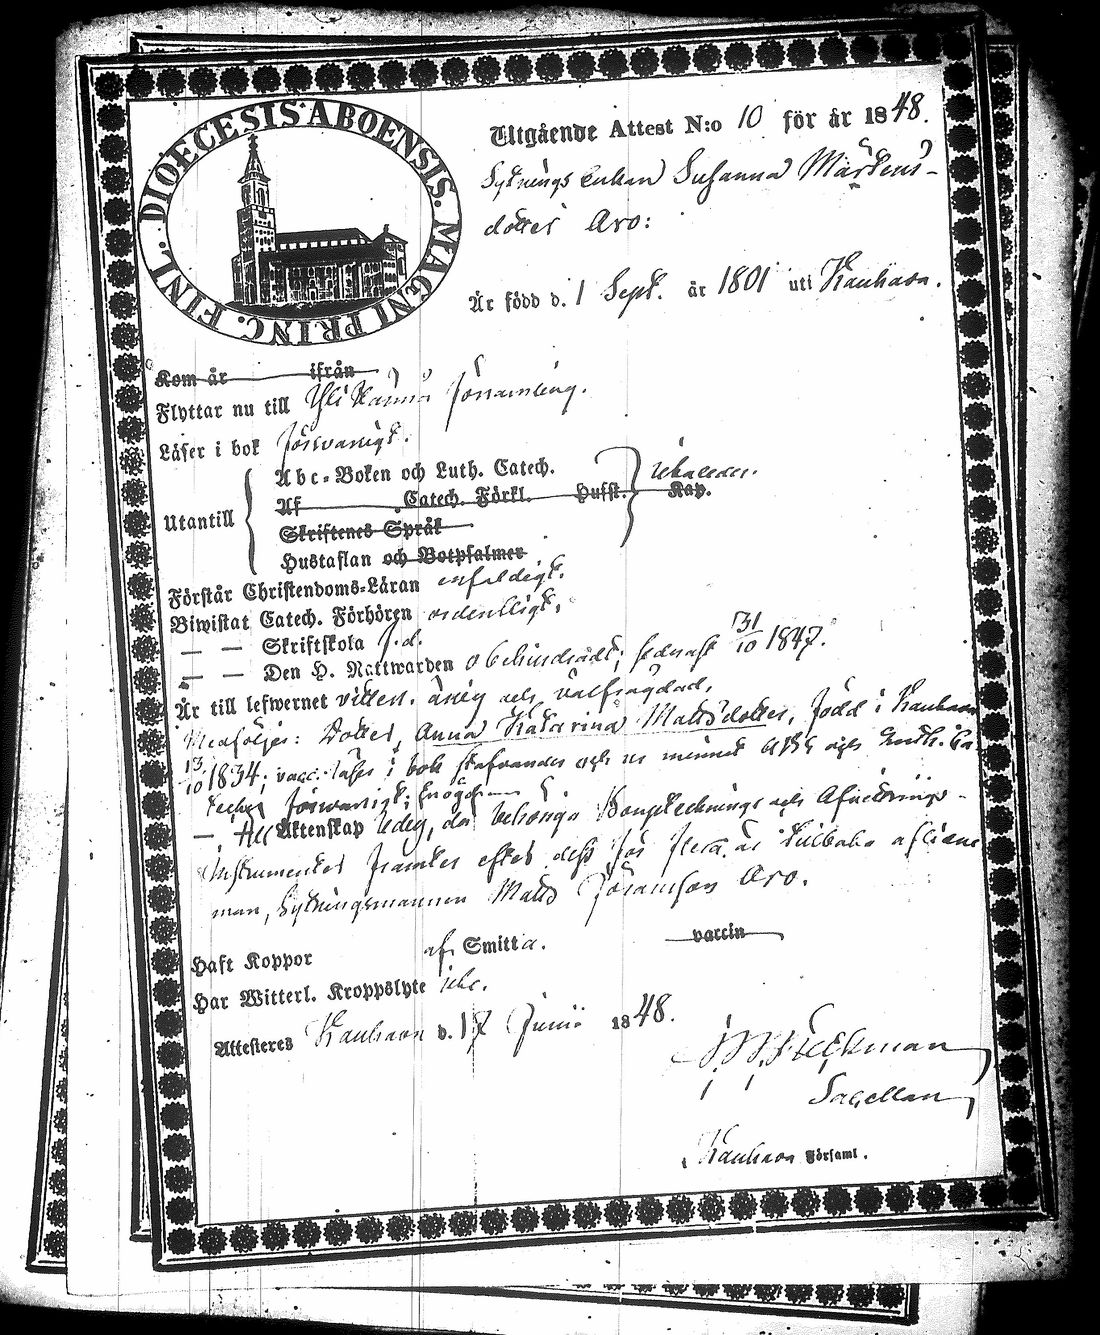 DIOECESIS ABOENSIS. MAGNI PRINC. FINL.
Utgående Attest N:o 10 för år 1848.
Sytnings enkan Susanna Mårtens-
dotter Aro:
Är född d. 1 Sept. år 1801 uti Kauhava.
Kom år ifrån
Flyttar nu till Ylikannu församling.
Läser i bok försvarligt.
Utantill
Abc-Boken och Luth. Catech.
Af Catech. Förkl. Hufst. Kap.
Skriftenes Språk
Hustaflan och Botpsalmer
Förstår Christendoms-Läran enfaldigt.
Biwistat Catech. Förhören ordentligt.
— — Skriftskola
— — Den H. Nattwarden obehindradt, sednast 31/10 1847.
Är till lefwernet ärlig och välfrägdad.
Medföljer: Dotter, Anna Katarina Mattsdotter, född i Kauhava
13/10 1834; vacc. läser i bok stafvande och ur minnet ABC och Luth. Ca
teches försvarligt;
— Till Äktenskap ledig, då behöriga Bouptecknings och Afwittrings-
Instrumenter framtes efter dess för flera år tillbaka aflidne
man, Sytningsmannen Matts Göranson Aro.
Haft Koppor af Smitta. vaccin
Har Witterl. Kroppslyte icke.
Attesteres Kauhava d. 17 Junii 1848.
Heckman
Sacellan
Kauhava Församl.